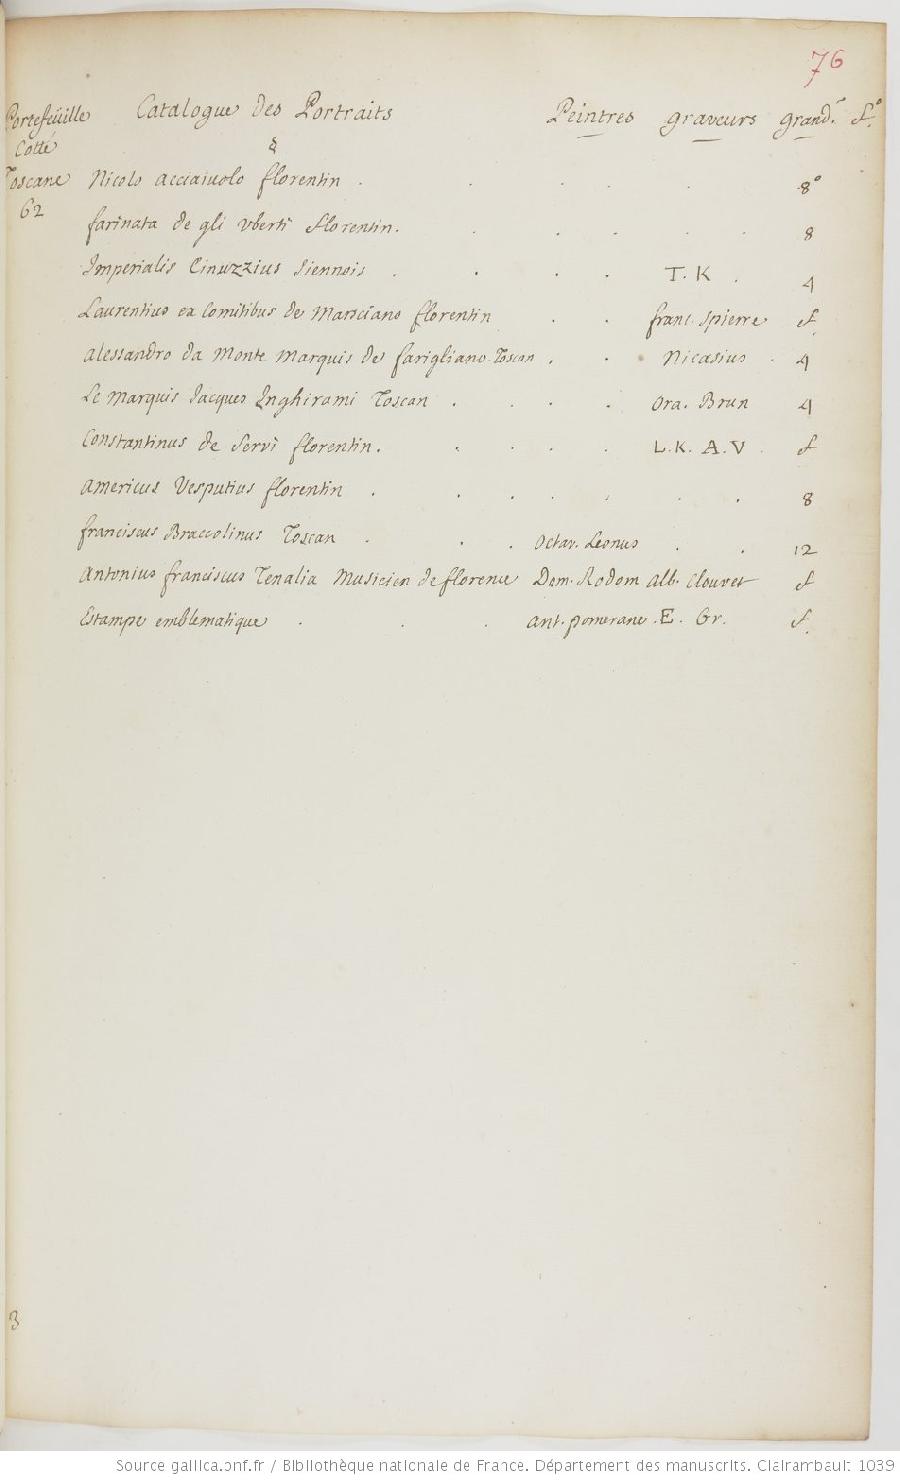 76
Portefeüille Catalogue des Portraits Peintres graveurs grand.r f.o
Cotté
Toscane Nicolo acciaiuolo florentin . . . . . 8o
62
farinata de gli vberti florentin. . . . . . 8
Imperialis Cinuzzius Siennois . . . . T. K . 4
Laurentius ex Comitibus de Marsciano florentin . . franc. Spierre f.
alessandro da Monte Marquis de farigliano Toscan . . Nicasius . 4
Le Marquis Jacques Inghirami Toscan . . . . Ora. Brun 4
Constantinus de Servi florentin. . . . . L. K. A. V . f
americus Vesputius florentin . . . . . . . 8
franciscus Braccolinus Toscan . . . Octav. Leonus . . 12
Antonius franciscus Tenalia Musicien de florence Dom. Rodom alb. Clouvet f
Estampe emblematique . . . ant. pomerane . E. Gr. f.
3
Source gallica.bnf.fr / Bibliothèque nationale de France. Département des manuscrits. Clairambault 1039